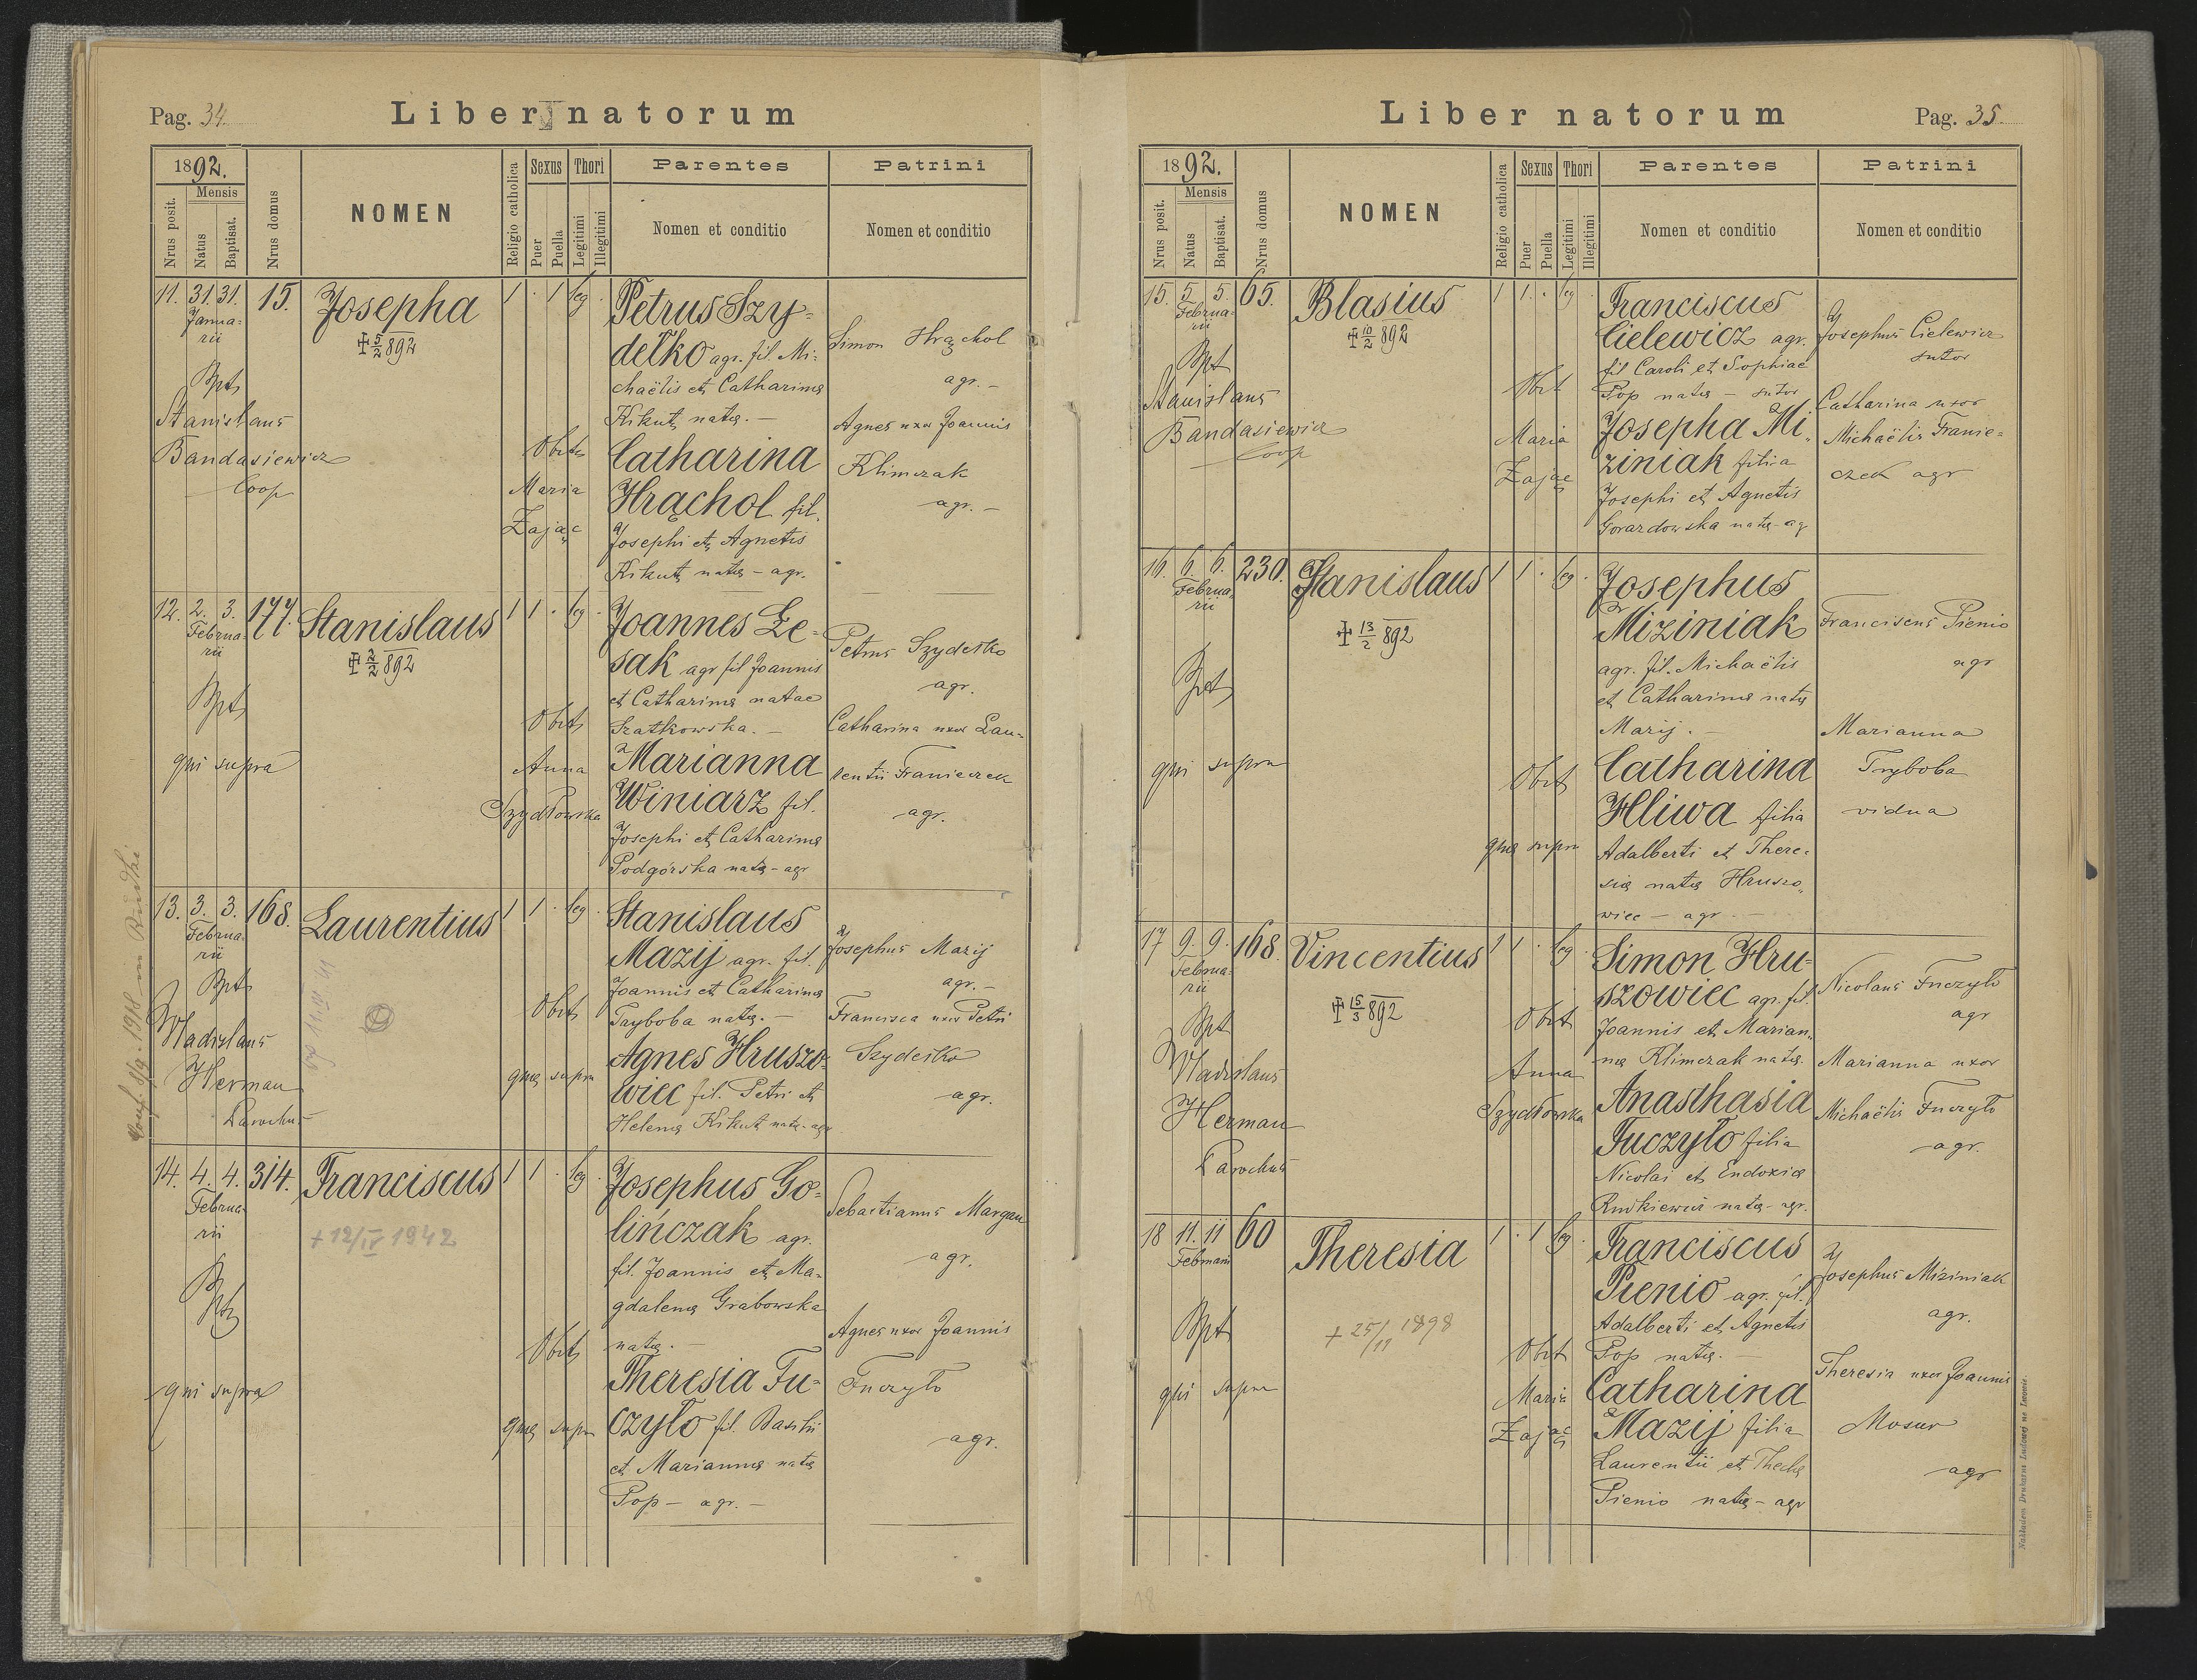 Pag. 34.
Liber natorum
1892.
Nrus posit.
Mensis
Natus
Baptisat.
Nrus domus
NOMEN
Religio catholica
Sexus
Puer
Puella
Thori
Legitimi
Illegitimi
Parentes
Nomen et conditio
Patrini
Nomen et conditio
11. 31. 31. 15. Josepha 1 · 1 leg ·
Janua-
rii
‡ 5/2 892
Bpt
Stanislaus
Bandasiewicz
Coop
Obst
Maria
Zając
Petrus Szy-
dełko agr. fil. Mi-
chaëlis et Catharinæ
Kikut natæ. —
Catharina
Hrąchol fil.
Josephi et Agnetis
Kikut natæ - agr.
Simon Hrąchol
agr. -
Agnes uxor Joannis
Klimczak
agr. -
12. 2. 3. 177. Stanislaus 1 1 · leg ·
Februa-
rii
‡ 2/2 892
Bpt
qui supra
Obst
Anna
Szydłowska
Joannes Le-
sak agr fil Joannis
et Catharinæ natae
Szatkowska. -
Marianna
Winiarz fil.
Josephi et Catharinæ
Podgórska natæ - agr
Petrus Szydełko
agr.
Catharina uxor Lau-
rentii Franiczek
agr.
13. 3. 3. 168. Laurentius 1 1 · leg ·
Februa-
rii
Bpt
Wladislaus
Herman
Parochus
Obst
quæ supra
Stanislaus
Mazij agr. fil.
Joannis et Catharinæ
Tryboba natæ. —
Agnes Hruszo-
wiec fil. Petri et
Helenæ Kikut natæ - agr
Josephus Mazij
agr. -
Francisca uxor Petri
Szydełko
agr.
14. 4. 4. 314. Franciscus 1 1 · leg ·
Februa-
rii
+ 12/IV 1942
Bpt
qui supra
Obst
quæ supra
Josephus Go-
lińczak agr.
fil. Joannis et Ma-
gdalenæ Grabowska
natæ. —
Theresia Fu-
czyło fil. Basilii
et Mariannæ natæ
Pop - agr. -
Sebastianus Margan
agr.
Agnes uxor Joannis
Fuczyło
agr.
Liber natorum
Pag. 35.
1892.
Nrus posit.
Mensis
Natus
Baptisat.
Nrus domus
NOMEN
Religio catholica
Sexus
Puer
Puella
Thori
Legitimi
Illegitimi
Parentes
Nomen et conditio
Patrini
Nomen et conditio
15. 5. 5. 65. Blasius 1 1. · leg ·
Februa-
rii
‡ 10/2 892
Bpt
Stanislaus
Bandasiewicz
Coop
Obst
Maria
Zając
Franciscus
Cielewicz agr.
fil Caroli et Sophiae
Pop natæ - sutor
Josepha Mi-
ziniak filia
Josephi et Agnetis
Gorazdowska natæ - agr
Josephus Cielewicz
sutor
Catharina uxor
Michaëlis Franie-
czek agr
16. 6. 6. 230. Stanislaus 1 1 · leg ·
Februa-
rii
‡ 13/2 892
Bpt
qui supra
Obst
quæ supra
Josephus
Miziniak
agr. fil. Michaëlis
et Catharinæ natæ
Mazij. —
Catharina
Hliwa filia
Adalberti et There-
siæ natæ Hruszo-
wiec - agr -
Franciscus Pienio
agr
Marianna
Tryboba
vidua
17 9. 9. 168. Vincentius 1 1 · leg ·
Februa-
rii
‡ 15/3 892
Bpt
Wladislaus
Herman
Parochus
Obst
Anna
Szydłowska
Simon Hru-
szowiec agr. fil.
Joannis et Marian-
næ Klimczak natæ.
Anasthasia
Fuczyło filia
Nicolai et Eudoxiæ
Rudkiewicz natæ - agr.
Nicolaus Fuczyło
agr
Marianna uxor
Michaëlis Fuczyło
agr.
18 11. 11 60 Theresia 1 · 1 leg ·
Februarii
+ 25/11 1898
Bpt
qui supra
Obst
Maria
Zając
Franciscus
Pienio agr. fil.
Adalberti et Agnetis
Pop natæ. —
Catharina
Mazij filia
Laurentii et Theclæ
Pienio natæ - agr
Josephus Miziniak
agr.
Theresia uxor Joannis
Mosur
agr
Nakładem Drukarni Ludowej we Lwowie.
18